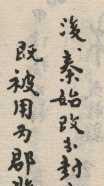 後、秦始改分封
既被用为郡